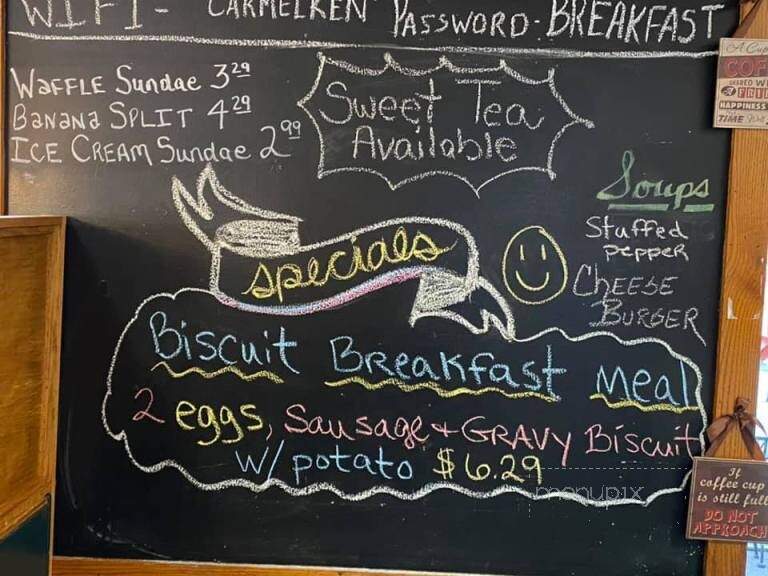 WIFI- CARMELKEN PASSWORD-BREAKFAST
WaFFLE Sundae 3 29
BaNaNa SPLIT 4 29
ICE CREAM Sundae 2 99
Sweet Tea
Available
Soups
Stuffed
pepper
CHEESE
BURGER
specials
Biscuit BReakfast Meal
2 eggs, Sausage + GRAVY Biscuit
w/ potato $6.29
menupix
A Cup
COF
SHARED WI
HAPPINESS
TIME
If
coffee cup
is still full
DO NOT
APPROACH